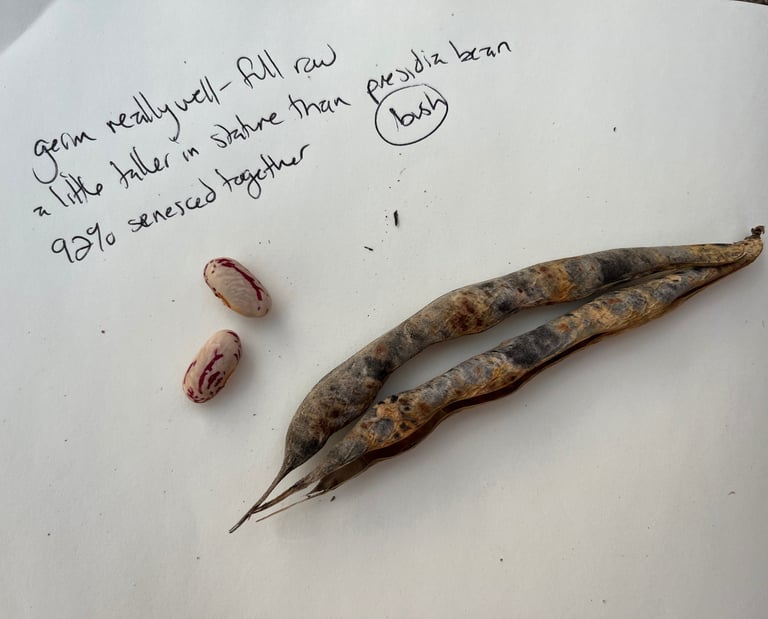 germ really well - full row
a little taller in stature than presidia bean
bush
92% senesced together